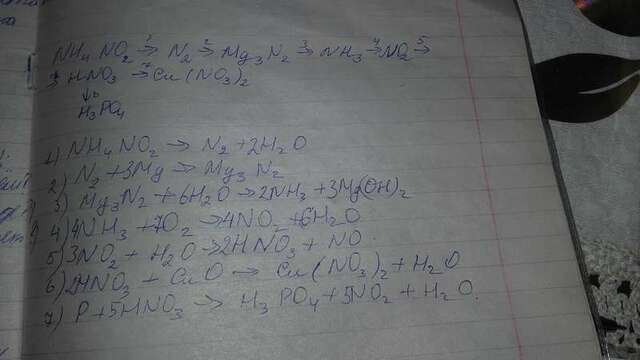 NH4NO2 →1 N2 →2 Mg3N2 →3 NH3 →4 NO2 →5
→ HNO3 →7 Cu(NO3)2
↓6
H3PO4
1) NH4NO2 → N2 + 2H2O
2) N2 + 3Mg → Mg3N2
3) Mg3N2 + 6H2O → 2NH3 + 3Mg(OH)2
4) 4NH3 + 7O2 → 4NO2 + 6H2O
5) 3NO2 + H2O → 2HNO3 + NO
6) 2HNO3 + CuO → Cu(NO3)2 + H2O
7) P + 5HNO3 → H3PO4 + 5NO2 + H2O.